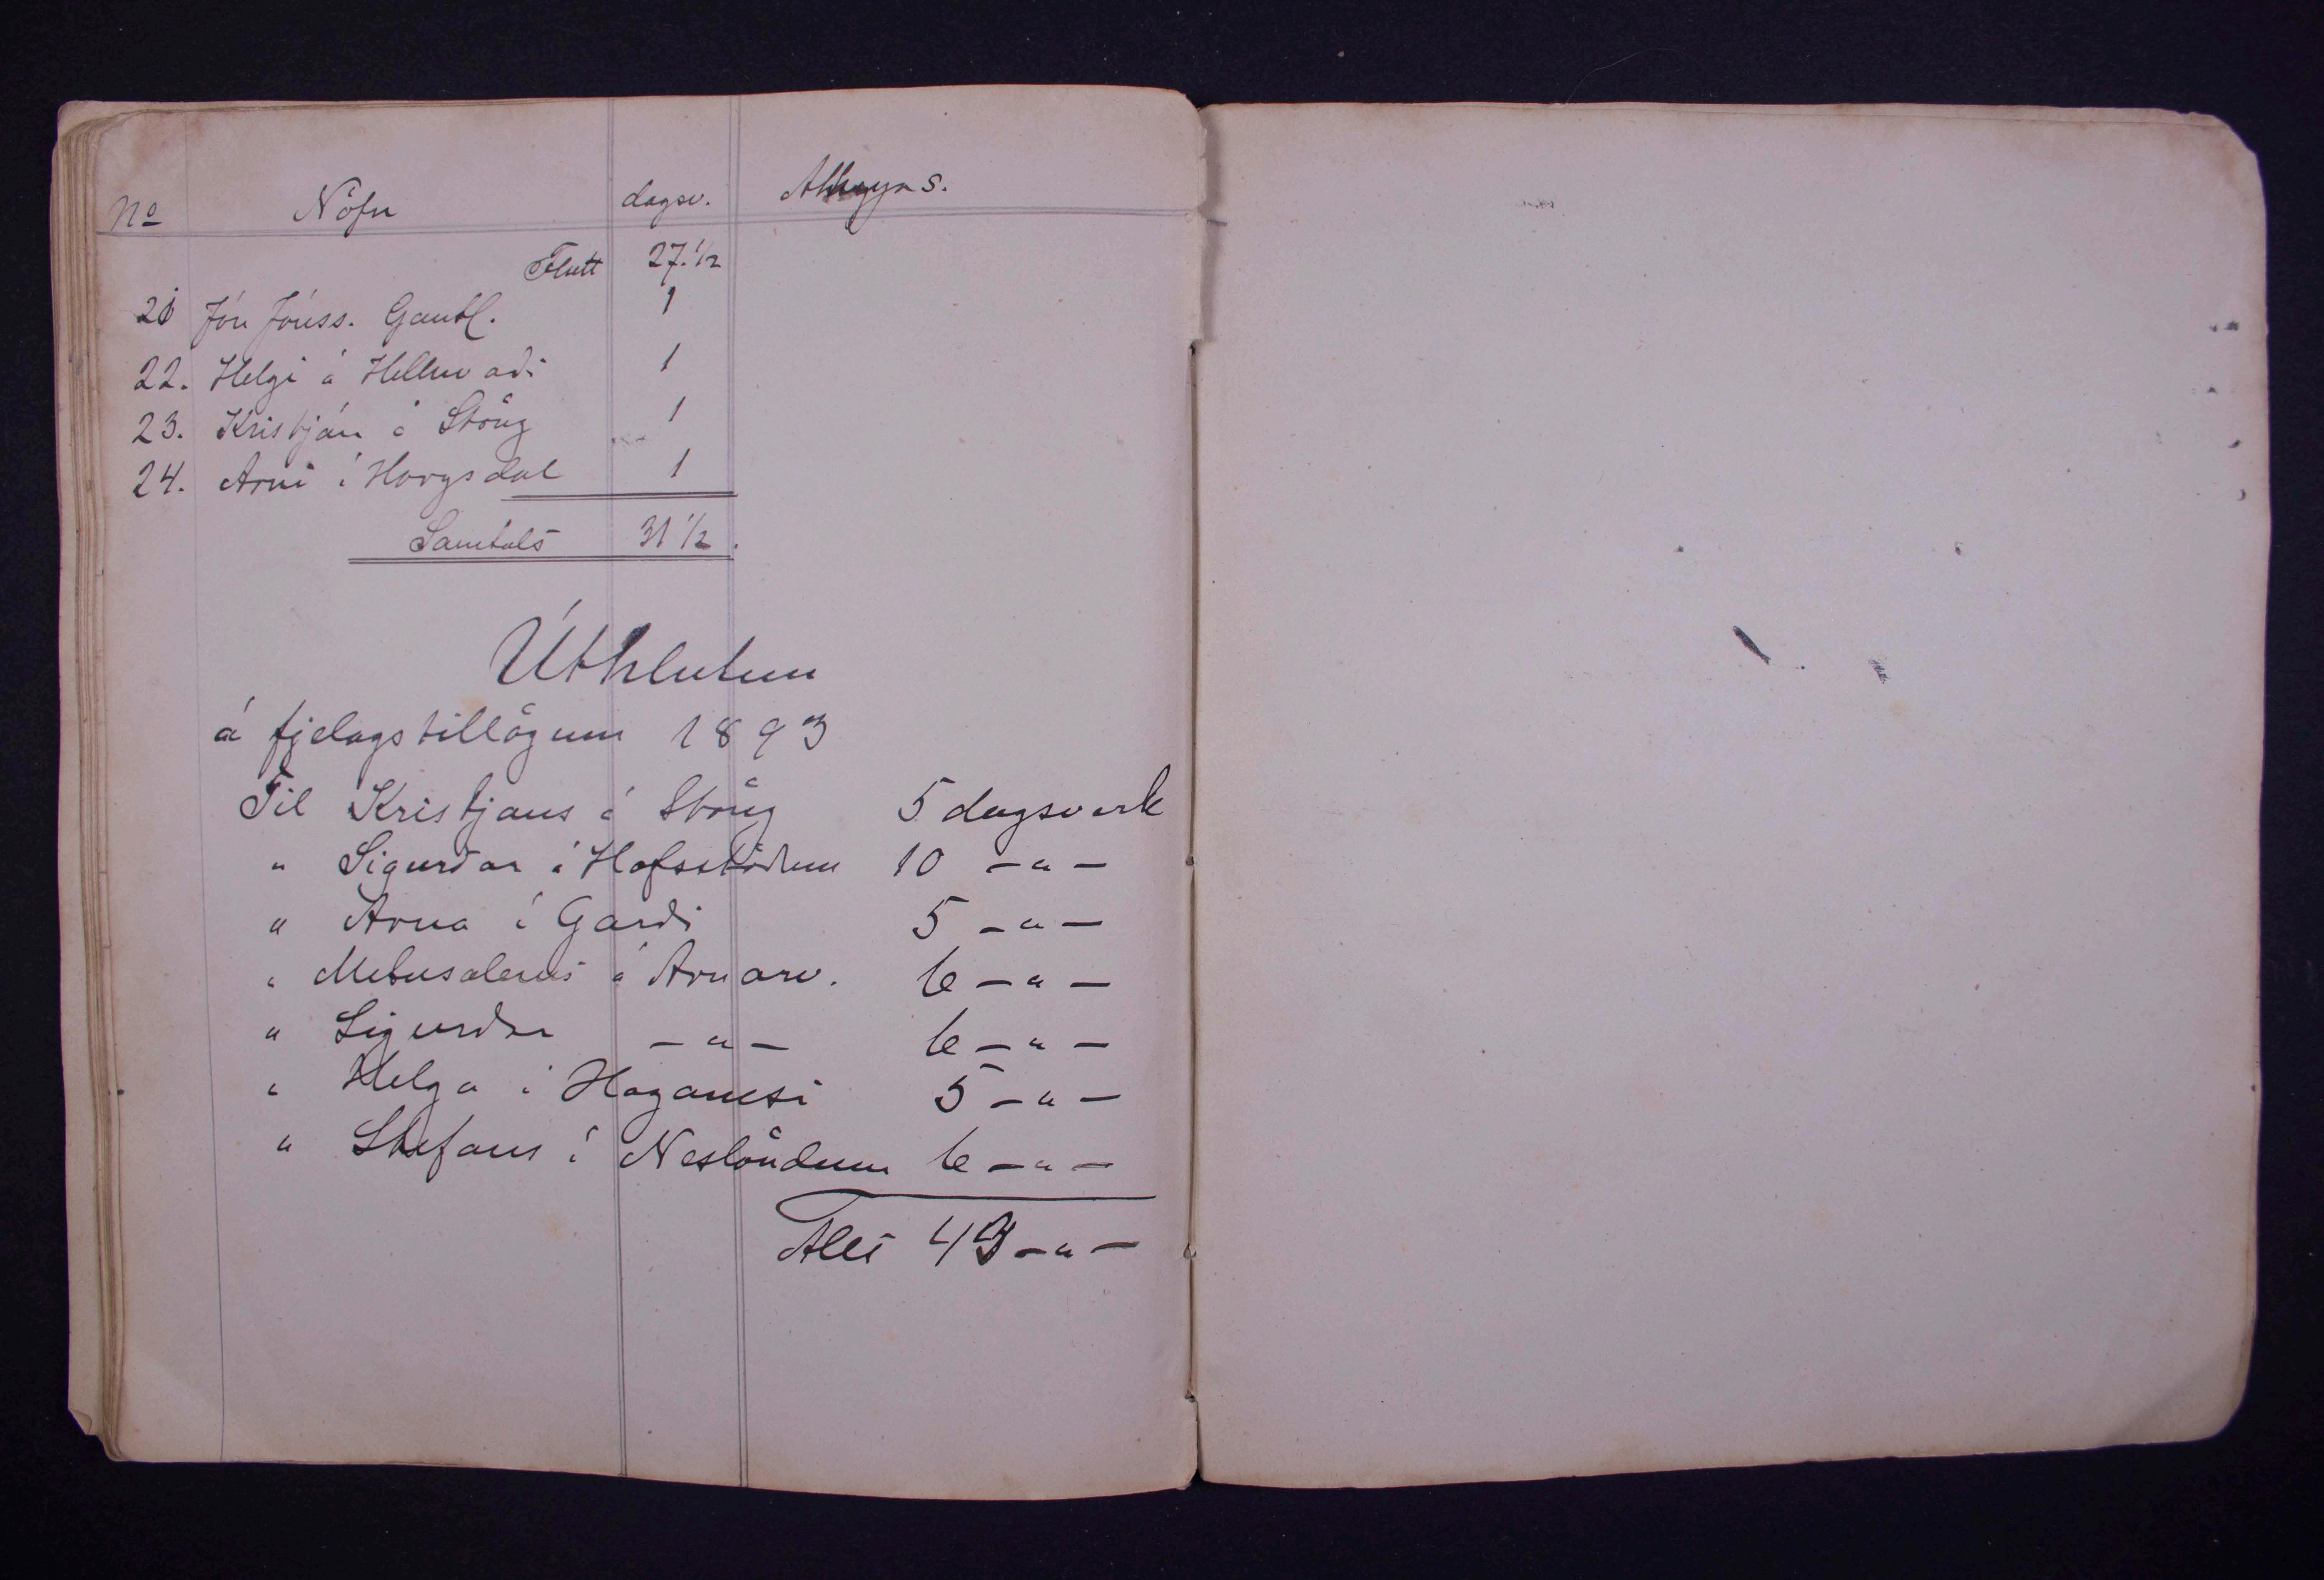 No Nöfn dagsv. Athugas.
Flutt 27.1/2
21 Jón Jónss. Gautl. 1
22. Helgi á Helluvaði 1
23. Kristján á Stöng 1
24. Arni í Horgsdal 1
Samtals 31 1/2.
Úthlutun
á fjelagstillögum 1893
Til Kristjans á Stöng 5 dagsverk
" Sigurðar á Hofsstöðum 10 -"-
" Arna í Garði 5 -"-
" Metusalems á Arnarv. 6 -"-
" Sigurðar -"- 6 -"-
" Helga í Haganesi 5 -"-
" Stefans í Neslöndum 6 -"-
Alls 43 -"-